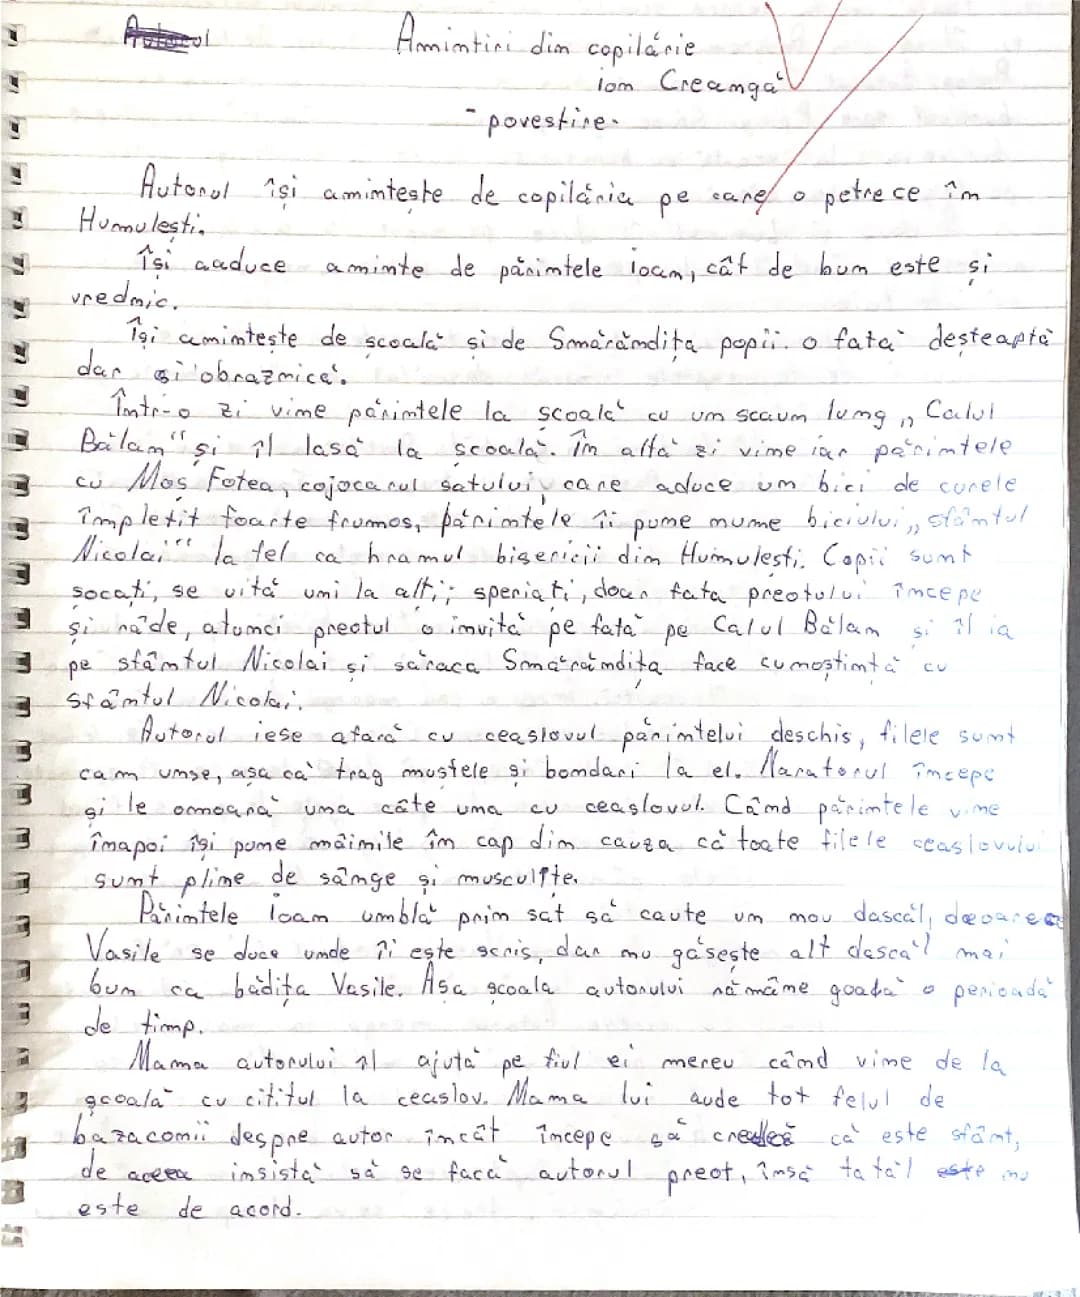 Amintiri din copilărie
ion Creangă
- povestire-
Autorul își amintește de copilăria pe care o petrece în
Humulești.
Își aaduce aminte de părintele Ioan, cât de bun este și
vrednic.
Își amintește de școală și de Smărăndița popii. o fată deșteaptă
dar și obraznică.
Într-o zi vine părintele la școală cu un scaun lung „Calul
Bălan" și îl lasă la școală. În altă zi vine iar părintele
cu Moș Fotea, cojocarul satului, care aduce un bici de curele
împletit foarte frumos, părintele îi pune nume biciului „sfântul
Nicolai" la fel ca hramul bisericii din Humulești. Copii sunt
șocați, se uită uni la alți; speriați, doar fata preotului începe
și râde, atunci preotul o invită pe fată pe Calul Bălan și îl ia
pe sfântul Nicolai și săraca Smărăndița face cunoștință cu
sfântul Nicolai.
Autorul iese afară cu ceaslovul părintelui deschis, filele sunt
cam unse, așa că trag muștele și bondari la el. Naratorul începe
și le omoară una câte una cu ceaslovul. Când părintele vine
înapoi își pune mâinile în cap din cauza că toate filele ceaslovului
sunt pline de sânge și musculițe.
Părintele Ioan umblă prin sat să caute un nou dascăl, deoarece
Vasile se duce unde îi este scris, dar nu găsește alt dascăl mai
bun ca bădița Vasile. Așa școala autorului rămâne goală o perioadă
de timp.
Mama autorului îl ajută pe fiul ei mereu când vine de la
școală cu cititul la ceaslov. Mama lui aude tot felul de
bazaconii despre autor încât începe să creadă că este sfânt,
de aceea insistă să se facă autorul preot, însă tatăl nu
este de acord.